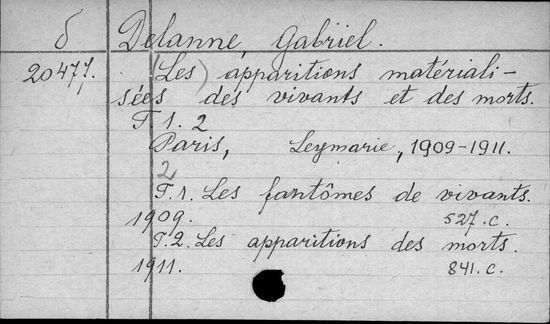 δ Delanne, Gabriel.
20477. (Les) apparitions matériali-
sées des vivants et des morts.
T 1. 2
Paris, Leymarie, 1909-1911.
2
T. 1. Les fantômes de vivants.
1909. 527. c.
T. 2. Les apparitions des morts.
1911. 841. c.